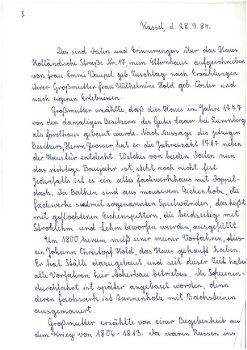 Kassel, d. 28.9.84.
Das sind Daten und Erinnerungen über das Haus
Holländische Straße Nr. 17, mein Elternhaus, aufgeschrieben
von Frau Emmi Vaupel geb. nach Erzählungen
ihrer Großmutter Frau Wilhelmine Hold geb. Coster und
nach eigenen Erlebnissen.
Großmutter erzählte daß das Haus im Jahre 1747
von den damaligen Besitzern des Gutes
als Forsthaus gebaut wurde. Nach Aussage des jetzigen
Besitzers, Herrn, hat er die Jahreszahl 1787 neben
der Haustür entdeckt. Welches von beiden Daten nun
das richtige Baujahr ist, steht noch nicht fest.
Jedenfalls ist es ein altes Fachwerkhaus mit Doppel-
dach. Die Balken sind aus massivem Eichenholz, die
Fachwerke sind mit sogenannten Spielwänden, das heißt
mit geflochtenen Eichensplittern, die beidseitig mit
Strohlehm und Lehm beworfen wurden, ausgefüllt.
Um 1800 herum muß einer meiner Vorfahren,
ein Johann Christoph Hold, das Haus gekauft haben.
Er hat Ställe einzubauen und seit dieser Zeit haben
alle Vorfahren hier Ackerbau betrieben. Die Scheunen-
durchfahrt ist später angebaut worden, denn
deren Fachwerk ist Tannenholz mit Backsteinen
ausgemauert.
Großmutter erzählte von einer Begebenheit aus
den Kriegen von 1806 - 1813. Da waren Russen ins